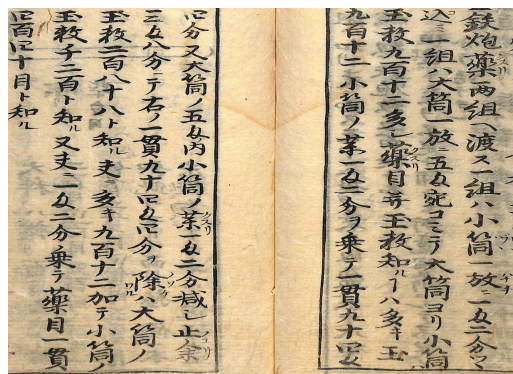 鉄炮薬両組ヘ渡ス一組ハ小筒 放一匁二分ツヽ
込ミ一組ハ大筒一放ニ五匁宛コミテ大筒ヨリ小筒
玉数九百十二多シ薬目并玉数知ルヿハ多キ玉
九百十二小筒ノ薬一匁二分ヲ乗テ一貫九十四匁
四分又大筒ノ五匁内小筒ノ薬一匁二分減シ止余
三匁八分ニテ右ノ一貫九十四匁四分ヲ除ハ大筒ノ
玉数二百八十八ト知ル夫多キ九百十二加テ小筒ノ
玉数千二百ト知ル又夫ニ一匁二分乗テ薬目一貫
四百四十目ト知ル